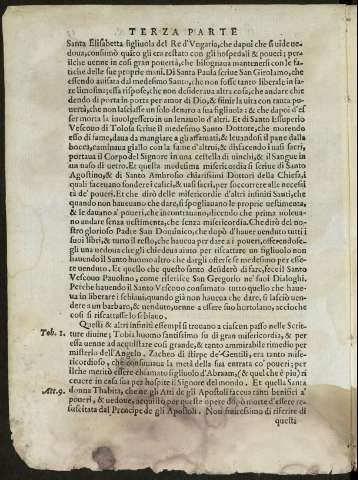 TERZA PARTE
Santa Elisabetta figliuola del Re d'Vngaria, che dapoi che si uide ue-
doua, consumò quato gli era restato con gli hospedali & poueri; per-
ilche uenne in cosi gran pouertà, che bisognaua mantenersi con le fa-
tiche delle sue proprie mani. Di Santa Paula scriue San Girolamo, che
essendo auisata dal medesimo Santo, che non fusse tanto liberale in fa-
re limosine; essa rispose, che non desideraua altra cosa, che andare chie
dendo di porta in porta per amor di Dio, & finir la uita con tanta pouer-
tà, che non lasciasse un solo denaro a sua figliuola: & che dapoi d'es-
ser morta la inuolgessero in un lenzuolo d'altri. Et di Santo Essuperio
Vescouo di Tolosa scriue il medesimo Santo Dottore, che morendo
esso di fame, daua da mangiare a gli affamati, & leuandosi il pane dalla
bocca, caminaua giallo con la fame d'altrui, & disfacendo i uasi sacri,
portaua il Corpo del Signore in una cestella di uinchi, & il Sangue in
un uaso di uetro. Et quella medesima misericordia si scriue di Santo
Agostino, & di Santo Ambrosio chiarissimi Dottori della Chiesa, i
quali faceuano fondere i calici, & uasi sacri, per soccorrere alle necessi-
tà de' poueri. Et che dirò delle misericordie d'altri infiniti Santi, che
quando non haueuano che dare, si spogliauano le proprie uestimenta,
& le dauano a' poueri, che incontrauano, dicendo che prima uoleua-
no andare senza uestimenta, che senza misericordia. Che dirò del no-
stro glorioso Padre San Domenico, che dapò d'hauer uenduto tutti i
suoi libri, & tutto il resto, che haueua per dare a i poueri, essendosi
gli una uedoua che gli chiedeua aiuto per riscattare un figliuolo non
hauendo il Santo huomo altro che dargli offerse se medesimo per es-
sere uenduto. Et quello che questo santo desiderò di fare, fece il Santo
Vescouo Paulino, come riferisce San Gregorio ne' suoi Dialoghi.
Perche hauendo il Santo Vescouo consumato tutto quello che haue-
ua in liberare i schiaui, quando già non haueua che dare, si lasciò uen-
dere a un barbaro, & uenduto, uenne a essere suo hortolano, accioche
cosi si riscattasse lo schiauo.
Questi & altri infiniti essempi si trouano a ciascun passo nelle Scrit-
Tob. 1. ture diuine; Tobia huomo santissimo fu di gran misericordia, & per
essa uenne ad acquistare cosi grande, & tanto ammirabile rimedio per
misterio dell'Angelo. Zacheo di stirpe de' Gentili, era tanto mise-
ricordioso, che consumaua la metà della sua entrata co' poueri; per
ilche meritò essere chiamato figliuolo d'Abraam, (& quel che è piu) ri
ceuere in casa sua per hospite il Signore del mondo. Et quella Santa
Att. 9. donna Thabita, che ne gli Atti de gli Apostoli faceua tanti benefici a'
poueri, & uedoue, acquistò per queste opere dopò morte d'essere re-
suscitata dal Prencipe de gli Apostoli. Non finiressimo di riferire di
questa